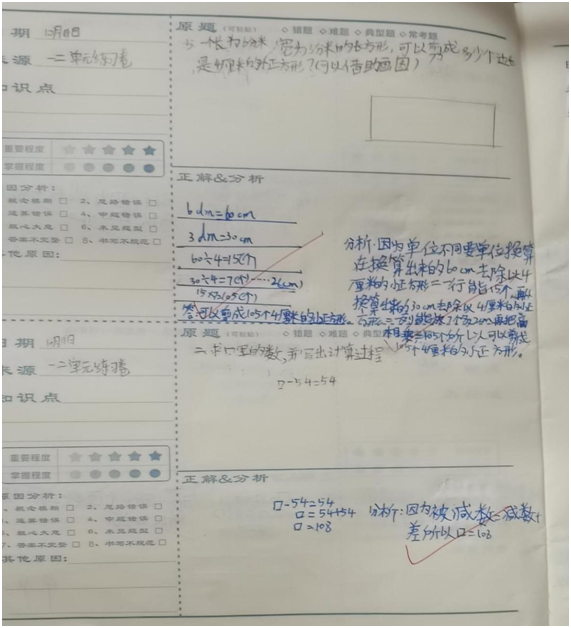 期 10月8日
原题（可粘贴） ◇错题 ◇难题 ◇典型题 ◇常考题
来源 一二单元练习卷
5、一个长为6分米,宽为3分米的长方形,可以剪成多少个边长
是4厘米的小正方形?(可以借助画图)
知识点
重要程度
掌握程度
正解&分析
因分析:
概念模糊 □ 2、思路错误 □
运算错误 □ 4、审题错误 □
粗心大意 □ 6、未见题型 □
答案不完整 □ 8、书写不规范 □
他原因:
6dm=60cm
3dm=30cm
60÷4=15(个)
30÷4=7(个)……2(cm)
15×7=105(个)
答:可以剪成105个4厘米的小正方形。
分析:因为单位不同要单位换算
在换算出来的60cm去除以4
厘米的小正方形=一行能15个,再
换算出来的30cm去除以4厘米的小正
方形=一列能放7个余2cm再把两
105个4厘米的小正方形。
期
原题（可粘贴） ◇错题 ◇难题 ◇典型
来源 一二单元练习卷
二、求□里的数,并写出计算过程
□-54=54
知识点
重要程度
掌握程度
正解&分析
原因分析:
概念模糊 □ 2、思路错误 □
运算错误 □ 4、审题错误 □
粗心大意 □ 6、未见题型 □
答案不完整 □ 8、书写不规范 □
其他原因:
□-54=54
□=54+54
□=108
分析:因为被减数=减数+
差所以□=108